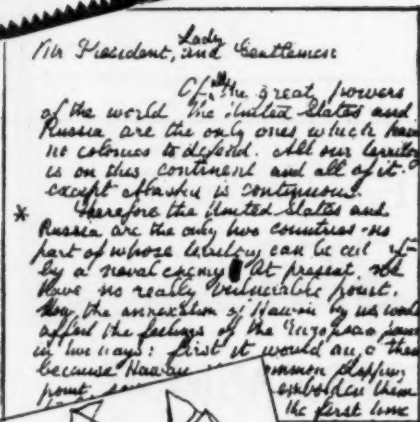 Mr President, Lady and Gentlemen
Of all the great powers
of the world the United States and
Russia are the only ones which have
no colonies to defend. All our territory
is on this continent and all of it
except Alaska is continuous.
* Therefore the United States and
Russia are the only two countries no
part of whose territory can be cut off
by a naval enemy At present, we
have no really vulnerable point.
Now the annexation of Hawaii by us would
affect the feelings of the European
in two ways: first it would
because Hawaii common stopping
point, embolden them
the first time